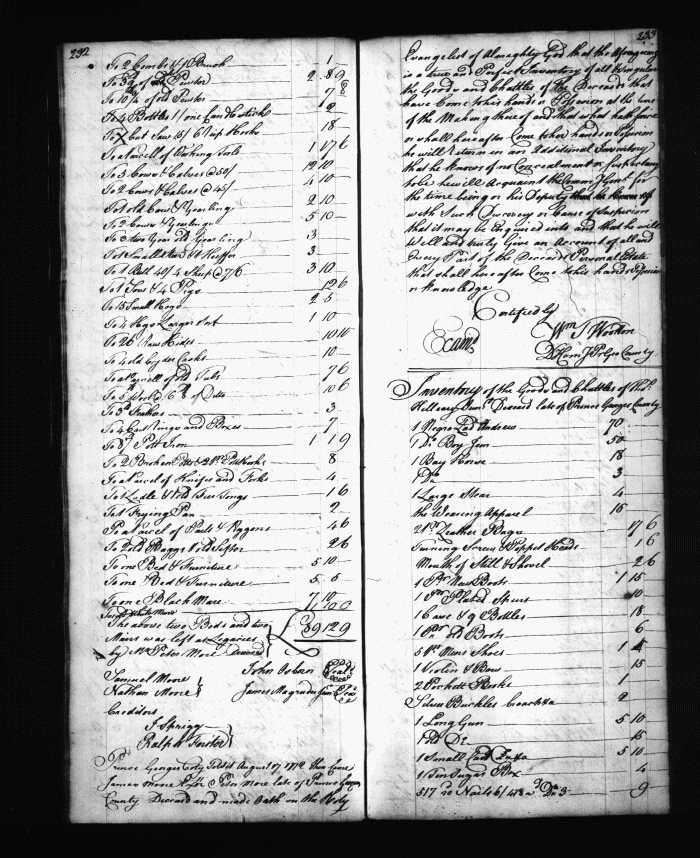 232
To 2 Combs & 1 Brush 1
of old Pewter 2 8 9
To 10 lb of old Pewter 7 8
To 4 Bottles 1/ one 1 2
To X Cut Saw 15/ 18
To a Parcell of Working Tools 1 17 6
To 3 Cows & Calves @ 50/
To 2 Cows & Calves @ 45/ 4 10
To 1 old Cow & Yearling 2 10
To 2 Cows & Yearlings 5 10
To 3 two Year old Yearling 3
To 1 Small Steer & 1 Heiffer 3
To 1 Bull 40/ 4 Sheep @ 7/6 3 10
To 1 Sow & 4 Pigs 12 6
To 15 Small Hogs 2 5
To 4 Hogs Larger 1 10
To 26 Raw Hides
To 4 old Cyder Casks 10
To a Parcell of old Tubs 7 6
of Ditto 10 6
Feathers 3
To 4 and Boxes 7
Pott Iron 1 1 9
To 2 Broken Potts & 2 Pr Pothooks 8
To a Parcel of Knifes and Forks 4
To 1 Ladle & 1 old Fire Tongs 1 6
To 1 Frying Pan 2
To a Parcel of Pails & Piggens 4 6
To 2 old Baggs 1 old Sifter 2 6
To one Bed & Furniture 5 10
To one Bed & Furniture 5 5
To one Black Mare 7 10
The above two Beds and two £ 89 12 9
Mairs was left as Legacies
by Mr Peter More Deceased
John Osborn Seal
Samuel Moore
Nathan Moore
James Magruder Junr Seal
Creditors
J Sprigg
Ralph Forster
Prince Georges Coty August 17 1772 then Came
James Moore Exr of Peter More late of Prince Georges
County Deceased and made Oath on the Holy
233
Evangelist of Almaghty God that the aforegoing
is a true and Perfect Inventory of all & Singular
the Goods and Chattles of the Deceased that
have Come to his hands or Possession at the time
of the Making thereof and that what hath since
or shall hereafter Come to his hands or Possession
he will Return in an Additional Inventory
that he knows of no Concealment or Suspicion
to be he will Acquaint the Comry Genl for
the time being or his Deputy
with Such Discovery or Cause of Suspicion
that it may be Enquired into and that he will
Well and truly Give an Account of all and
Every Part of the Deceaseds Personal Estate
that shall hereafter Come to his hands or Possession
or knowledge
Certified by
Examd
Wm T Wootton
D Com Pr Geo County
Inventory of the Goods and Chattles of
Junr Deceased late of Prince Georges County
1 Negro Lad Andrew 70
1 Do Boy Jem 50
1 Bay Horse 18
1 Do 3
1 Large Stear 4
the Wearing Apparel 15
2 Pr Leather Baggs 17 6
Turning Screw & Heads 1 6
Mouth of Still & Shovel 2 6
1 Pr New Boots 1 15
1 Pr Plated Spurs 10
1 Case & 9 Bottles 18
1 Pr old Boots 6
5 Pr Mens Shoes 1 4
1 Violin & Bow 15
2 Pockett Books 1
Silver Buckles 2
1 Long Gun 5 10
1 old Do 15
1 Small 5 10
1 Tin Sugar Box 4
517 9